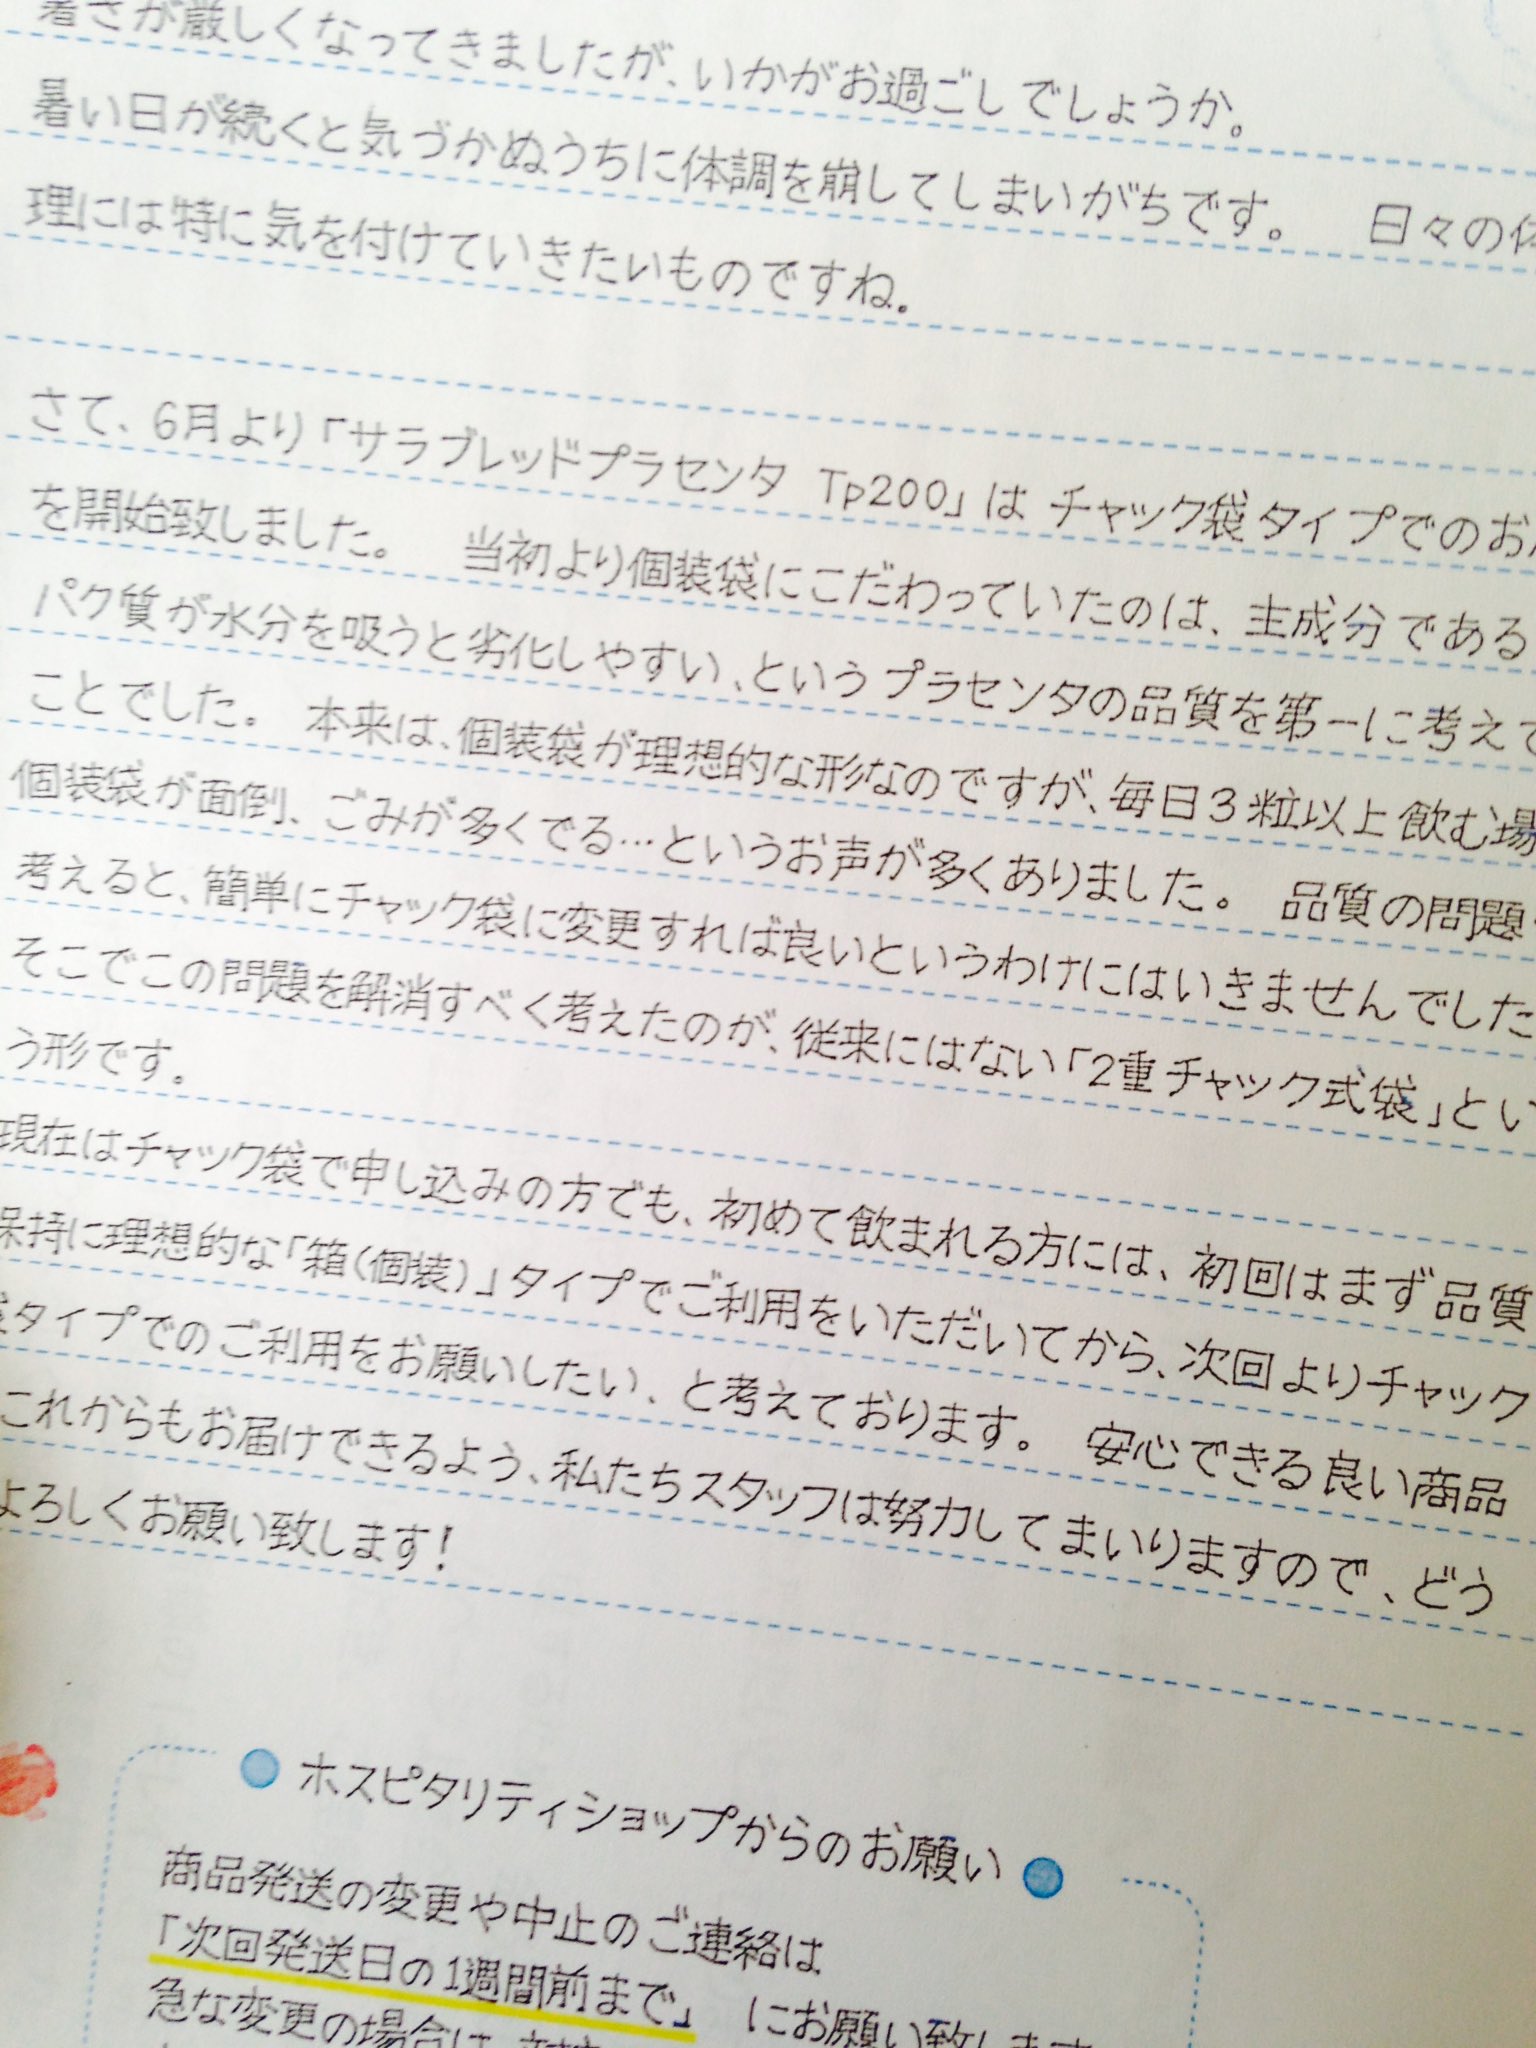 暑さが厳しくなってきましたが、いかがお過ごしでしょうか。
暑い日が続くと気づかぬうちに体調を崩してしまいがちです。 日々の体
理には特に気を付けていきたいものですね。
さて、6月より「サラブレッドプラセンタ Tp200」は チャック袋タイプでのお
を開始致しました。 当初より個装袋にこだわっていたのは、主成分である
パク質が水分を吸うと劣化しやすい、というプラセンタの品質を第一に考えて
ことでした。 本来は、個装袋が理想的な形なのですが、毎日3粒以上飲む場
個装袋が面倒、ごみが多くでる…というお声が多くありました。 品質の問題
考えると、簡単にチャック袋に変更すれば良いというわけにはいきませんでした
そこでこの問題を解消すべく考えたのが、従来にはない「2重チャック式袋」とい
う形です。
現在はチャック袋で申し込みの方でも、初めて飲まれる方には、初回はまず品質
保持に理想的な「箱(個装)」タイプでご利用をいただいてから、次回よりチャック
袋タイプでのご利用をお願いしたい、と考えております。 安心できる良い商品
これからもお届けできるよう、私たちスタッフは努力してまいりますので、どう
よろしくお願い致します!
ホスピタリティショップからのお願い
商品発送の変更や中止のご連絡は
「次回発送日の1週間前まで」 にお願い致します
急な変更の場合は